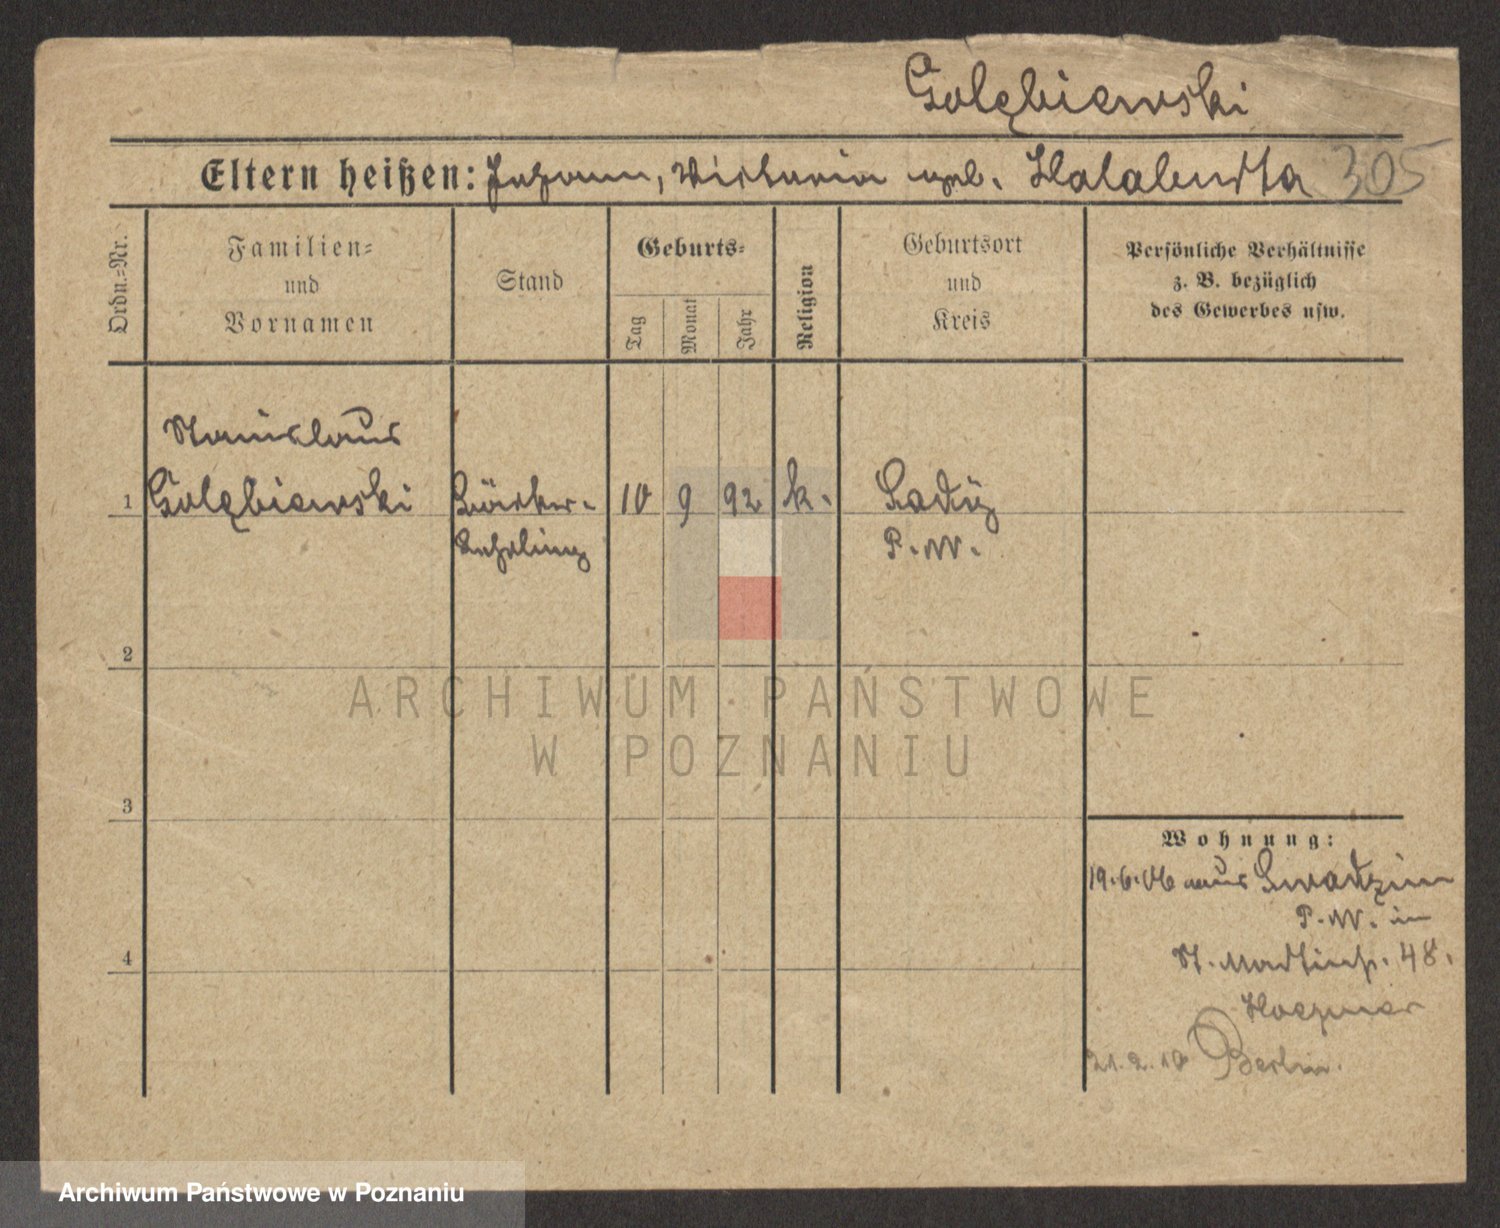 Golębiewski
Eltern heißen: Johann, Victoria geb. Halaburda 305
Ordn.=Nr.
Familien=
und
Vornamen
Stand
Geburts=
Tag
Monat
Jahr
Religion
Geburtsort
und
Kreis
Persönliche Verhältnisse
z. B. bezüglich
des Gewerbes usw.
Stanislaus
1 Golębiewski Bäcker- 10 9 92 k.
Lehrling P.-W.
2
ARCHIWUM PAŃSTWOWE
W POZNANIU
3
Wohnung:
19.6.06 aus Swadzim
P.-W. in
4
St. Martinstr. 48.
21.2.10 Berlin.
Archiwum Państwowe w Poznaniu